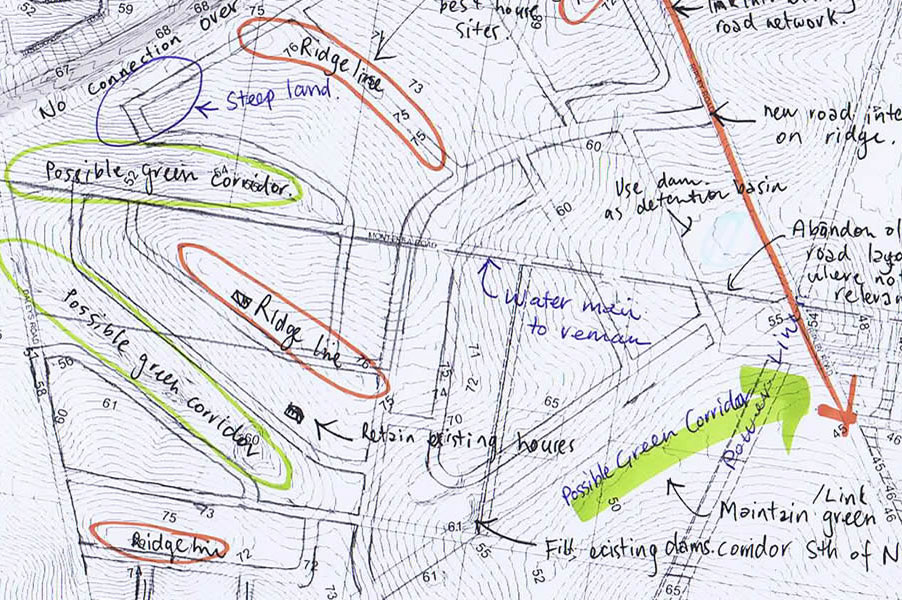 59
68
68
67
No connection over
75
76
Ridge line
71
73
75
75
best house
sites.
68
72
road network.
Steep land.
new road inte
on ridge.
60
60
Possible green corridor.
52
54
Use dam
as detention basin
MONTEREA ROAD
Abandon ol
road layo
where not
relevan
Water main
to remain
55
54
48
Possible green corridor
60
Ridge line
76
75
51
50
58
60
61
73
71
74
72
70
65
Retain existing houses
Possible Green Corridor
Power Line
50
45
46
45
46
46
Maintain/Link
green
Fill existing dams. corridor Sth of N
61
55
52
61
65
75
73
Ridge line
72
72
73